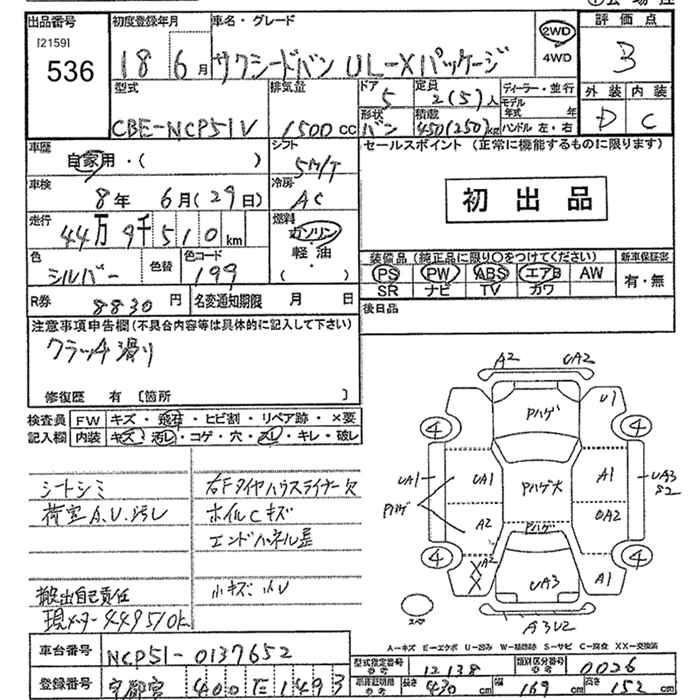 出品番号 初度登録年月 車名・グレード 評価点
[2159]
536
18 6月 サクシードバン UL-Xパッケージ 2WD 4WD 3
外装 内装
D C
型式 排気量 ドア 定員 ディーラー・並行
CBE-NCP51V 1500cc 5 2(5)人 モデル年式 年
形状 積載 ハンドル 左・右
バン 450(250)kg
車歴 自家用・( ) シフト 5M/T
セールスポイント (正常に機能するものに限ります)
車検 8年 6月(29日) 冷房 AC
初出品
走行 44万9千510km 燃料 ガソリン・軽油・( )
色 シルバー 色替 色コード 199
装備品(純正品に限り○をつけてください) 新車保証書
PS PW ABS エアB AW 有・無
SR ナビ TV カワ
R券 8830円 名変通知期限 月 日
後日品
注意事項申告欄(不具合内容等は具体的に記入して下さい)
クラッチ滑り
修復歴 有 [箇所 ]
検査員 FW キズ・飛石・ヒビ割・リペア跡・×要
記入欄 内装 キズ・汚レ・コゲ・穴・スレ・キレ・破レ
シートシミ
荷室A.U.汚レ
搬出自己責任
現メーター449510k
右Fタイヤハウスライナー欠
ホイルCキズ
エンドパネル歪
小キズ・小U
A2 UA2
Pハゲ U1
4 4
UA1 UA1 Pハゲ大 A1 UA3 S2
Pハゲ A2 Pハゲ UA2
4 A2 4
XX UA3 A1
スペア
A3U2
A-キズ E-エクボ U-凹み W-補修跡 S-サビ C-腐食 XX-交換済
車台番号 NCP51-0137652
型式指定番号 12138 類別区分番号 0026
登録番号 宇都宮 400 た 1493
長さ 430cm 幅 169cm 高さ 152cm